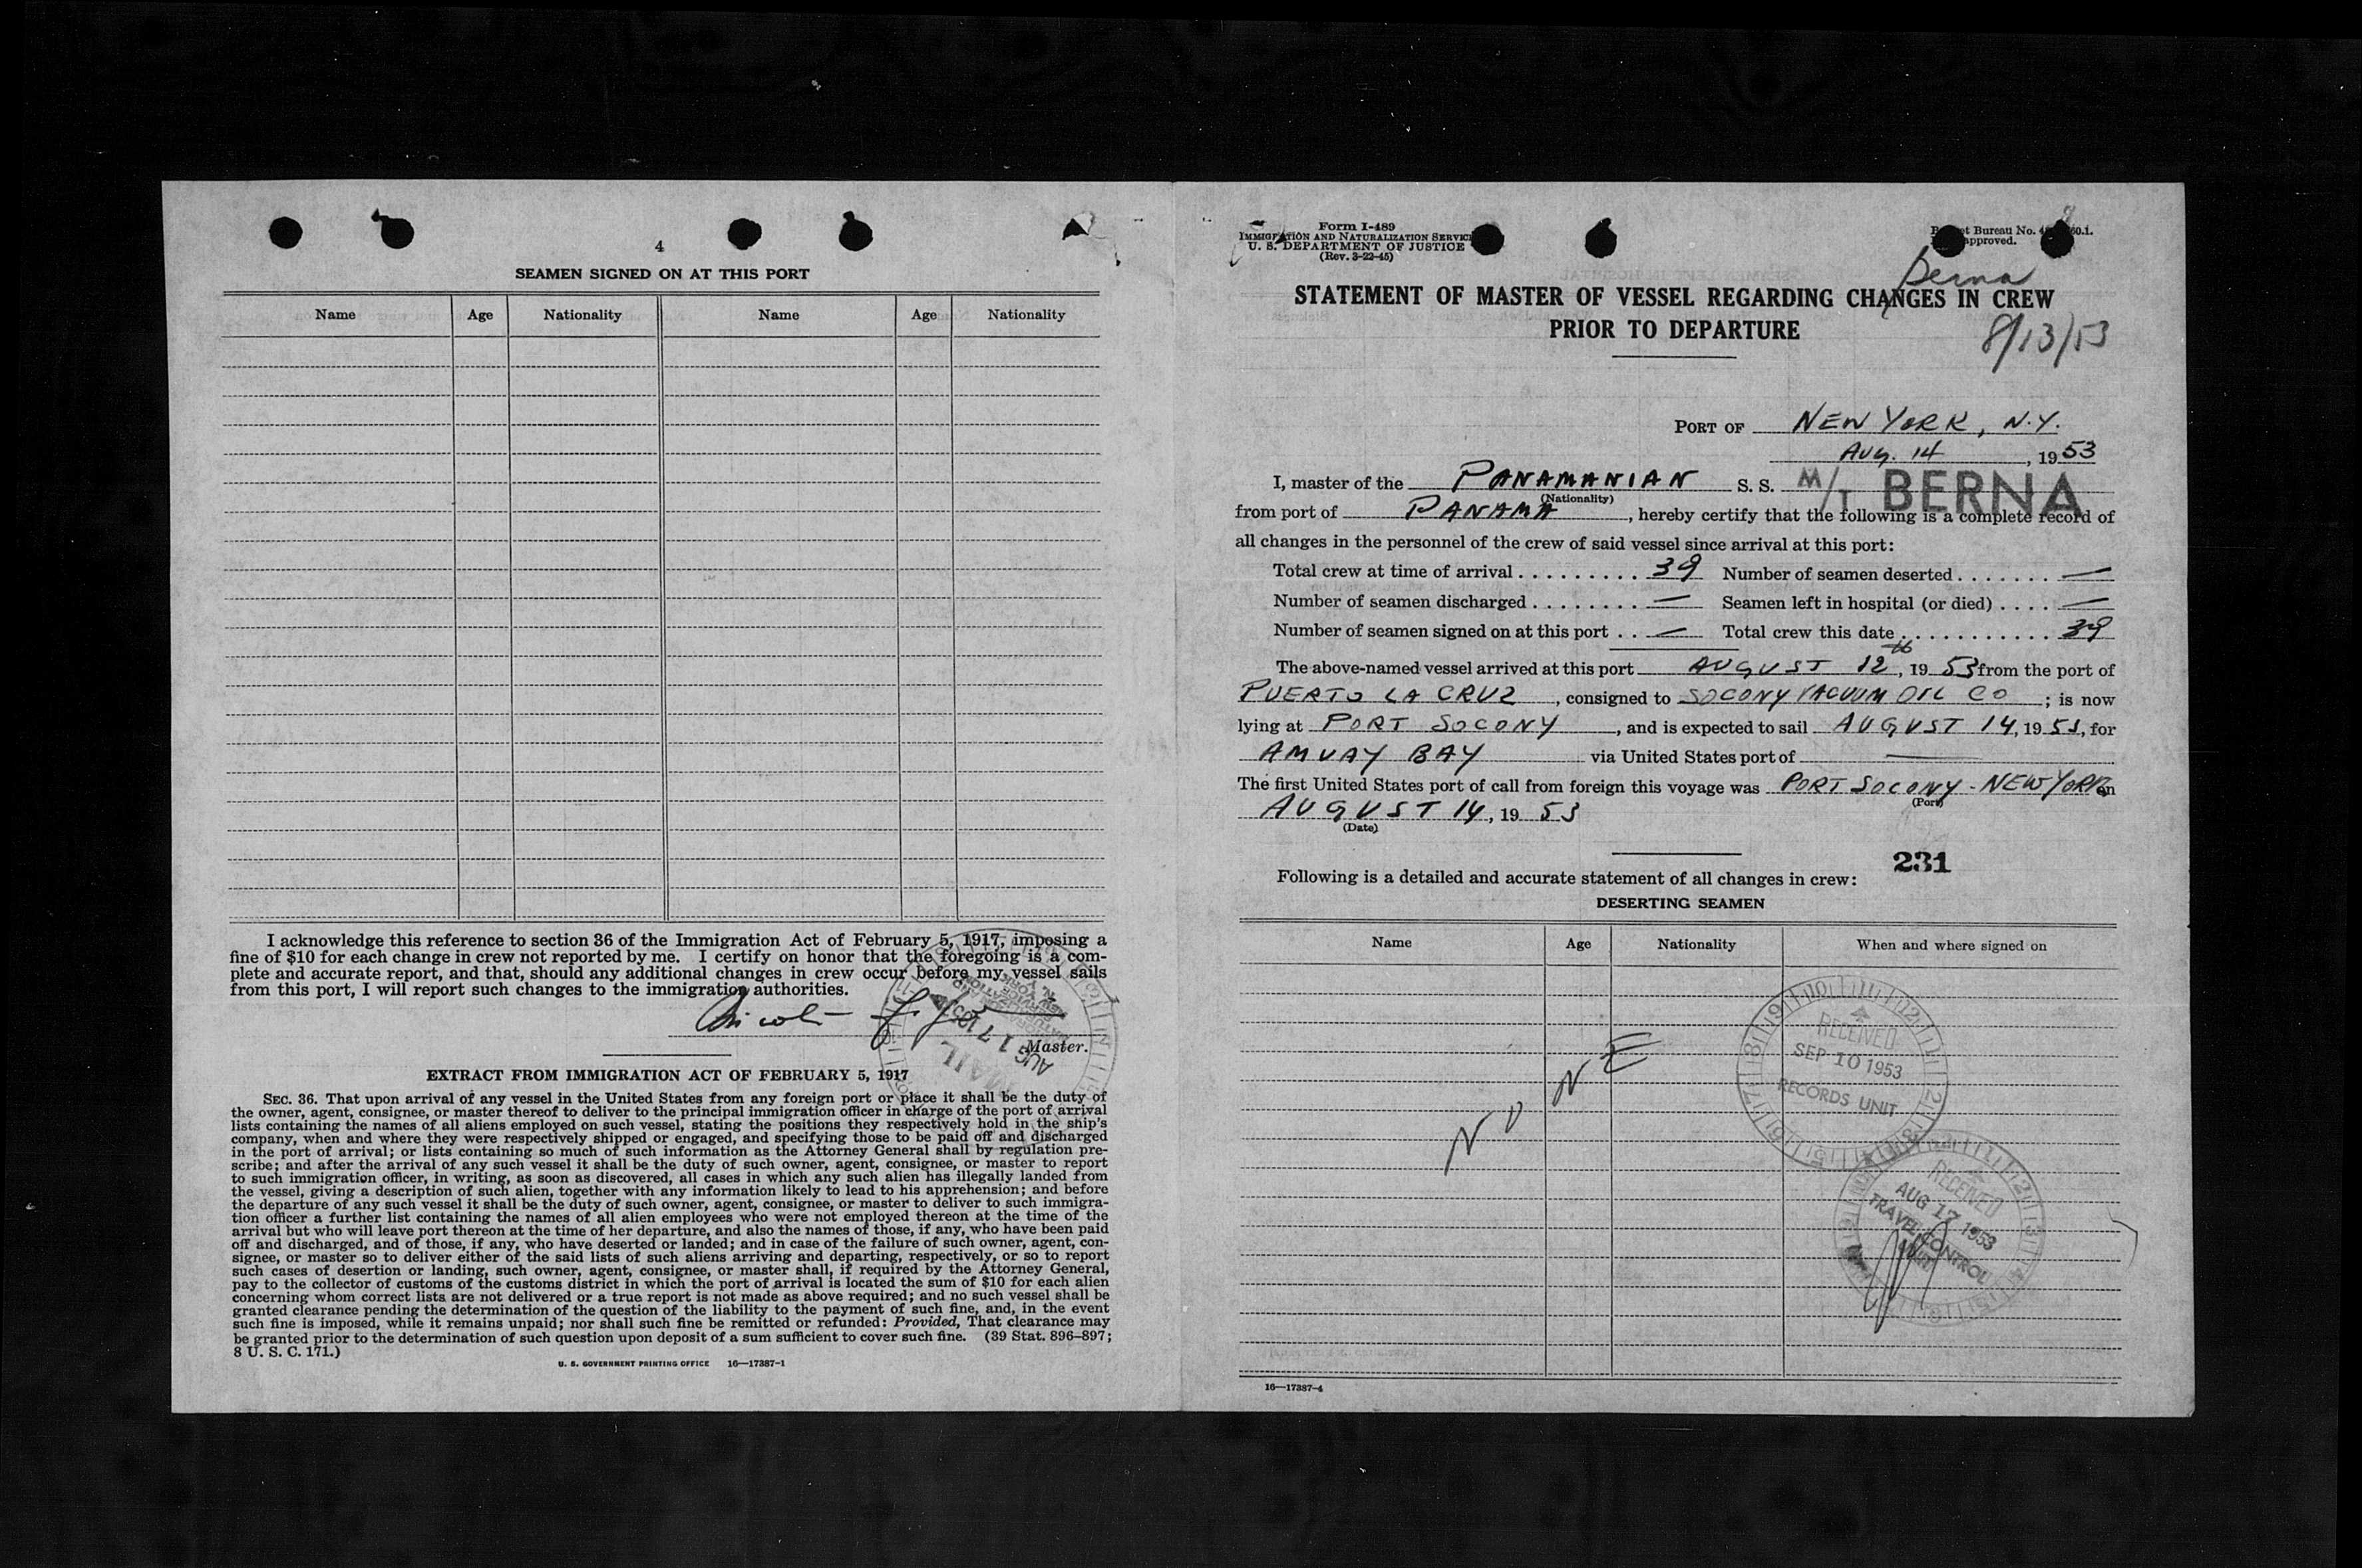 4
SEAMEN SIGNED ON AT THIS PORT
Name Age Nationality Name Age Nationality
I acknowledge this reference to section 36 of the Immigration Act of February 5, 1917, imposing a
fine of $10 for each change in crew not reported by me. I certify on honor that the foregoing is a com-
plete and accurate report, and that, should any additional changes in crew occur before my vessel sails
from this port, I will report such changes to the immigration authorities.
Master.
AUG 17 195
MAIL
EXTRACT FROM IMMIGRATION ACT OF FEBRUARY 5, 1917
SEC. 36. That upon arrival of any vessel in the United States from any foreign port or place it shall be the duty of
the owner, agent, consignee, or master thereof to deliver to the principal immigration officer in charge of the port of arrival
lists containing the names of all aliens employed on such vessel, stating the positions they respectively hold in the ship's
company, when and where they were respectively shipped or engaged, and specifying those to be paid off and discharged
in the port of arrival; or lists containing so much of such information as the Attorney General shall by regulation pre-
scribe; and after the arrival of any such vessel it shall be the duty of such owner, agent, consignee, or master to report
to such immigration officer, in writing, as soon as discovered, all cases in which any such alien has illegally landed from
the vessel, giving a description of such alien, together with any information likely to lead to his apprehension; and before
the departure of any such vessel it shall be the duty of such owner, agent, consignee, or master to deliver to such immigra-
tion officer a further list containing the names of all alien employees who were not employed thereon at the time of the
arrival but who will leave port thereon at the time of her departure, and also the names of those, if any, who have been paid
off and discharged, and of those, if any, who have deserted or landed; and in case of the failure of such owner, agent, con-
signee, or master so to deliver either of the said lists of such aliens arriving and departing, respectively, or so to report
such cases of desertion or landing, such owner, agent, consignee, or master shall, if required by the Attorney General,
pay to the collector of customs of the customs district in which the port of arrival is located the sum of $10 for each alien
concerning whom correct lists are not delivered or a true report is not made as above required; and no such vessel shall be
granted clearance pending the determination of the question of the liability to the payment of such fine, and, in the event
such fine is imposed, while it remains unpaid; nor shall such fine be remitted or refunded: Provided, That clearance may
be granted prior to the determination of such question upon deposit of a sum sufficient to cover such fine. (39 Stat. 896–897;
8 U. S. C. 171.)
U. S. GOVERNMENT PRINTING OFFICE 16—17387-1
Form I-489
IMMIGRATION AND NATURALIZATION SERVICE
U. S. DEPARTMENT OF JUSTICE
(Rev. 3-22-45)
Bureau No.
approved.
Berna
STATEMENT OF MASTER OF VESSEL REGARDING CHANGES IN CREW
PRIOR TO DEPARTURE
8/13/53
PORT OF NEW YORK, N.Y.
AUG. 14, 1953
I, master of the PANAMANIAN S. S. M/T BERNA
(Nationality)
from port of PANAMA, hereby certify that the following is a complete record of
all changes in the personnel of the crew of said vessel since arrival at this port:
Total crew at time of arrival . . . . . . . . . 39 Number of seamen deserted . . . . . . . —
Number of seamen discharged . . . . . . . . — Seamen left in hospital (or died) . . . . —
Number of seamen signed on at this port . . — Total crew this date . . . . . . . . . . . 39
The above-named vessel arrived at this port AUGUST 12th, 1953 from the port of
PUERTO LA CRUZ, consigned to SOCONY VACUUM OIL CO; is now
lying at PORT SOCONY, and is expected to sail AUGUST 14, 1953, for
AMUAY BAY via United States port of —
The first United States port of call from foreign this voyage was PORT SOCONY - NEW YORK on
(Port)
AUGUST 14, 1953
(Date)
231
Following is a detailed and accurate statement of all changes in crew:
DESERTING SEAMEN
Name Age Nationality When and where signed on
NONE
RECEIVED
SEP 10 1953
RECORDS UNIT
RECEIVED
AUG 17 1953
TRAVEL CONTROL
UNIT
16—17387-4